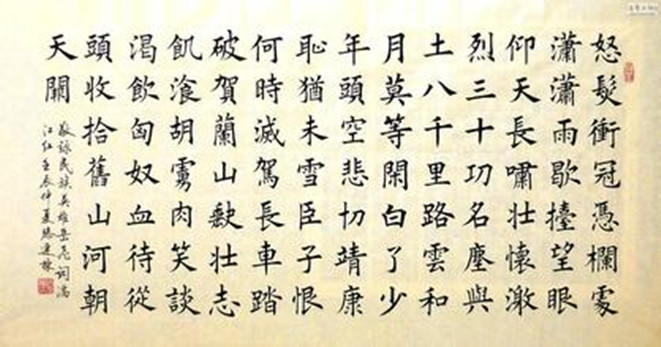 怒髮衝冠憑欄處
瀟瀟雨歇擡望眼
仰天長嘯壯懷激
烈三十功名塵與
土八千里路雲和
月莫等閑白了少
年頭空悲切靖康
恥猶未雪臣子恨
何時滅駕長車踏
破賀蘭山缺壯志
飢湌胡虜肉笑談
渴飲匈奴血待從
頭收拾舊山河朝
天闕
民族英雄岳飛詞滿
江紅壬辰仲夏